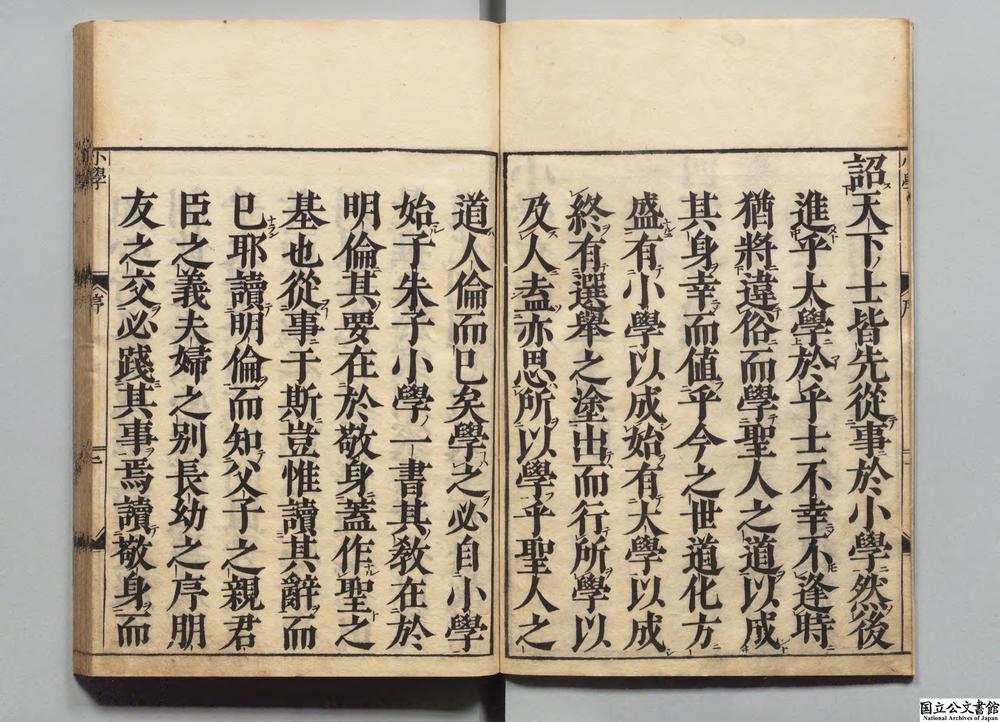 詔天下士皆先從事於小學然後
進乎大學於乎士不幸不逢時
猶將違俗而學聖人之道以成
其身幸而値乎今之世道化方
盛有小學以成始有大學以成
終有選舉之塗出而行所學以
及人盍亦思所以學乎聖人之
道人倫而已矣學之必自小學
始子朱子小學一書其敎在於
明倫其要在於敬身蓋作聖之
基也從事于斯豈惟讀其辭而
已耶讀明倫而知父子之親君
臣之義夫婦之別長幼之序朋
友之交必踐其事焉讀敬身而
小學
序
二
国立公文書館
National Archives of Japan